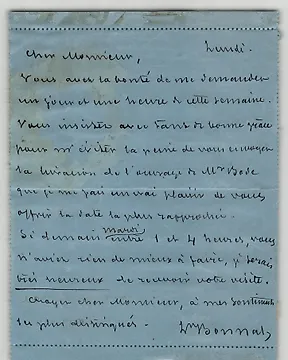 Lundi.
Cher Monsieur,
Vous avez la bonté de me demander
un jour et une heure de cette semaine.
Vous insistez avec tant de bonne grâce
pour m'éviter la peine de vous envoyer
la livraison de l'ouvrage de Mr
que je me fais un vrai plaisir de vous
offrir la date la plus rapprochée.
Si demain mardi entre 1 et 4 heures, vous
n'aviez rien de mieux à faire, je serais
très heureux de recevoir votre visite.
Croyez cher Monsieur, à mes sentiments
les plus distingués.
Ln Bonnat